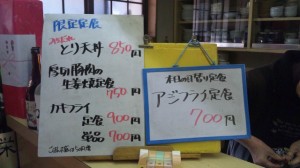 限定定食
とり天丼 850円
厚切豚肉の
生姜焼定食
750円
カキフライ
定食 900円
単品 700円
本日の日替り定食
アジフライ定食
700円